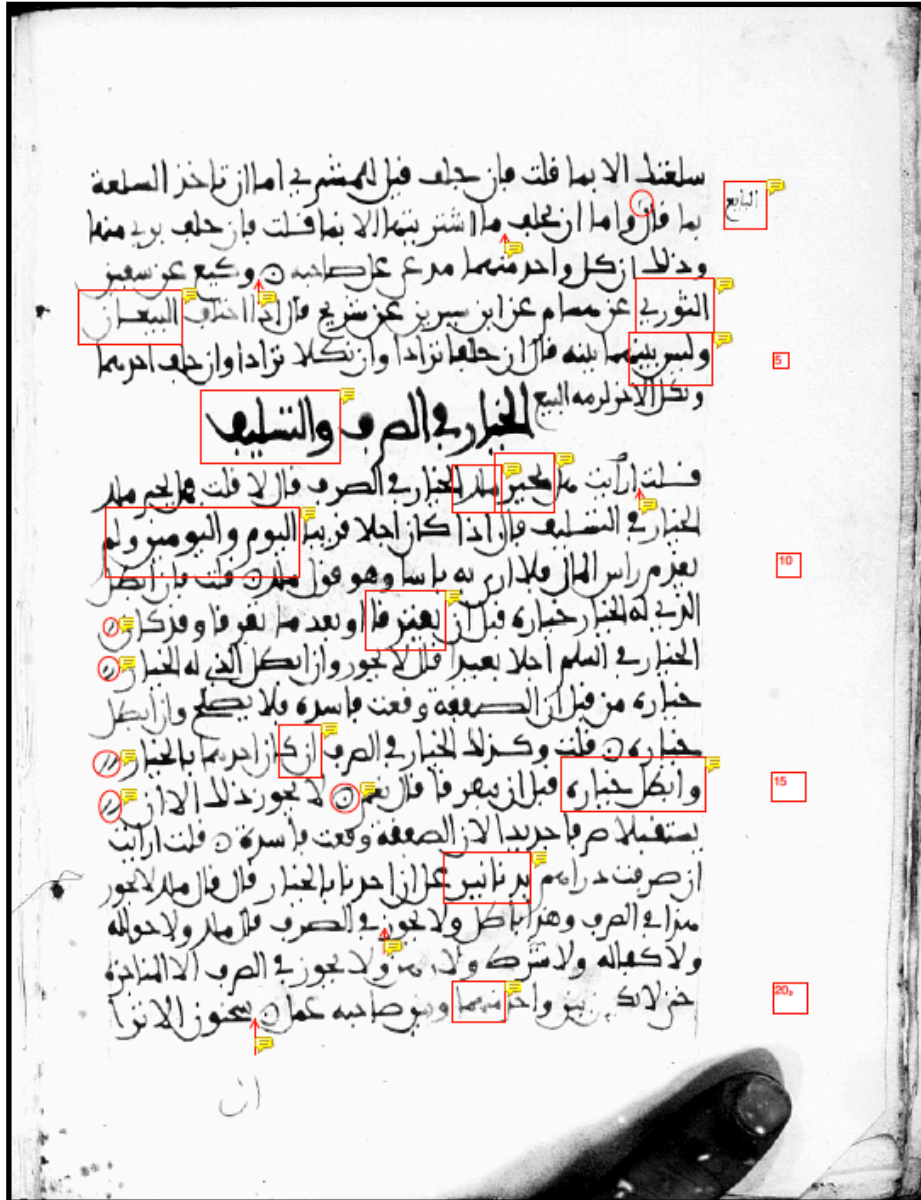 البايع
سلعتك الا بما قلت فإن حلف قيل للمشتري اما ان تاخذ السلعة
بما قال واما ان تحلف ما اشتريتها الا بما قلت فإن حلف برئ منها
وذلك ان كل واحد منهما مدع على صاحبه ن وكيع عن سفين
الثوري عن هشام عن ابن سيرين عن شريح قال اذا اختلف البيعان
وليس بينهما بينه قال ان حلفا ترادا وان نكلا ترادا وان حلف احدهما
5
ونكل الاخر لزمه البيع
الخيار في الصرف والتسليف
قلت ارأيت هل يجيز ملك الخيار في الصرف قال لا قلت هل يجيز ملك
الخيار في التسليف قال اذا كان اجلا قريبا اليوم واليومين ولم
يقدم راس المال فلا ارى به باسا وهو قول ملك ن قلت فان ابطل
10
الذي له الخيار خياره قبل ان يفترقا او بعد ما تفرقا وقد كان
الخيار في السلم اجلا بعيدا قال لا يجوز وان ابطل الذي له الخيار
خياره من قبل ان الصفقه وقعت فاسده فلا يصلح وان ابطل
خياره ن قلت وكذلك الخيار في الصرف ان كان احدهما بالخيار
وابطل خياره قبل ان يتفرقا قال نعم ن لا يجوز ذلك الا ان
15
يستقبلا صرفا جديدا لان الصفقه وقعت فاسده ن قلت ارايت
ان صرفت دراهم بدنانير على ان احدنا بالخيار قال قال ملك لا يجوز
هذا في الصرف وهذا باطل ولا يجوز في الصرف قال ملك ولا حواله
ولا كفاله ولا شرك ولا رهن ولا يجوز في الصرف الا المناجزة
حتى لا يكون بين واحد منهما وبين صاحبه عمل ن سحنون الا ترا
20
ان